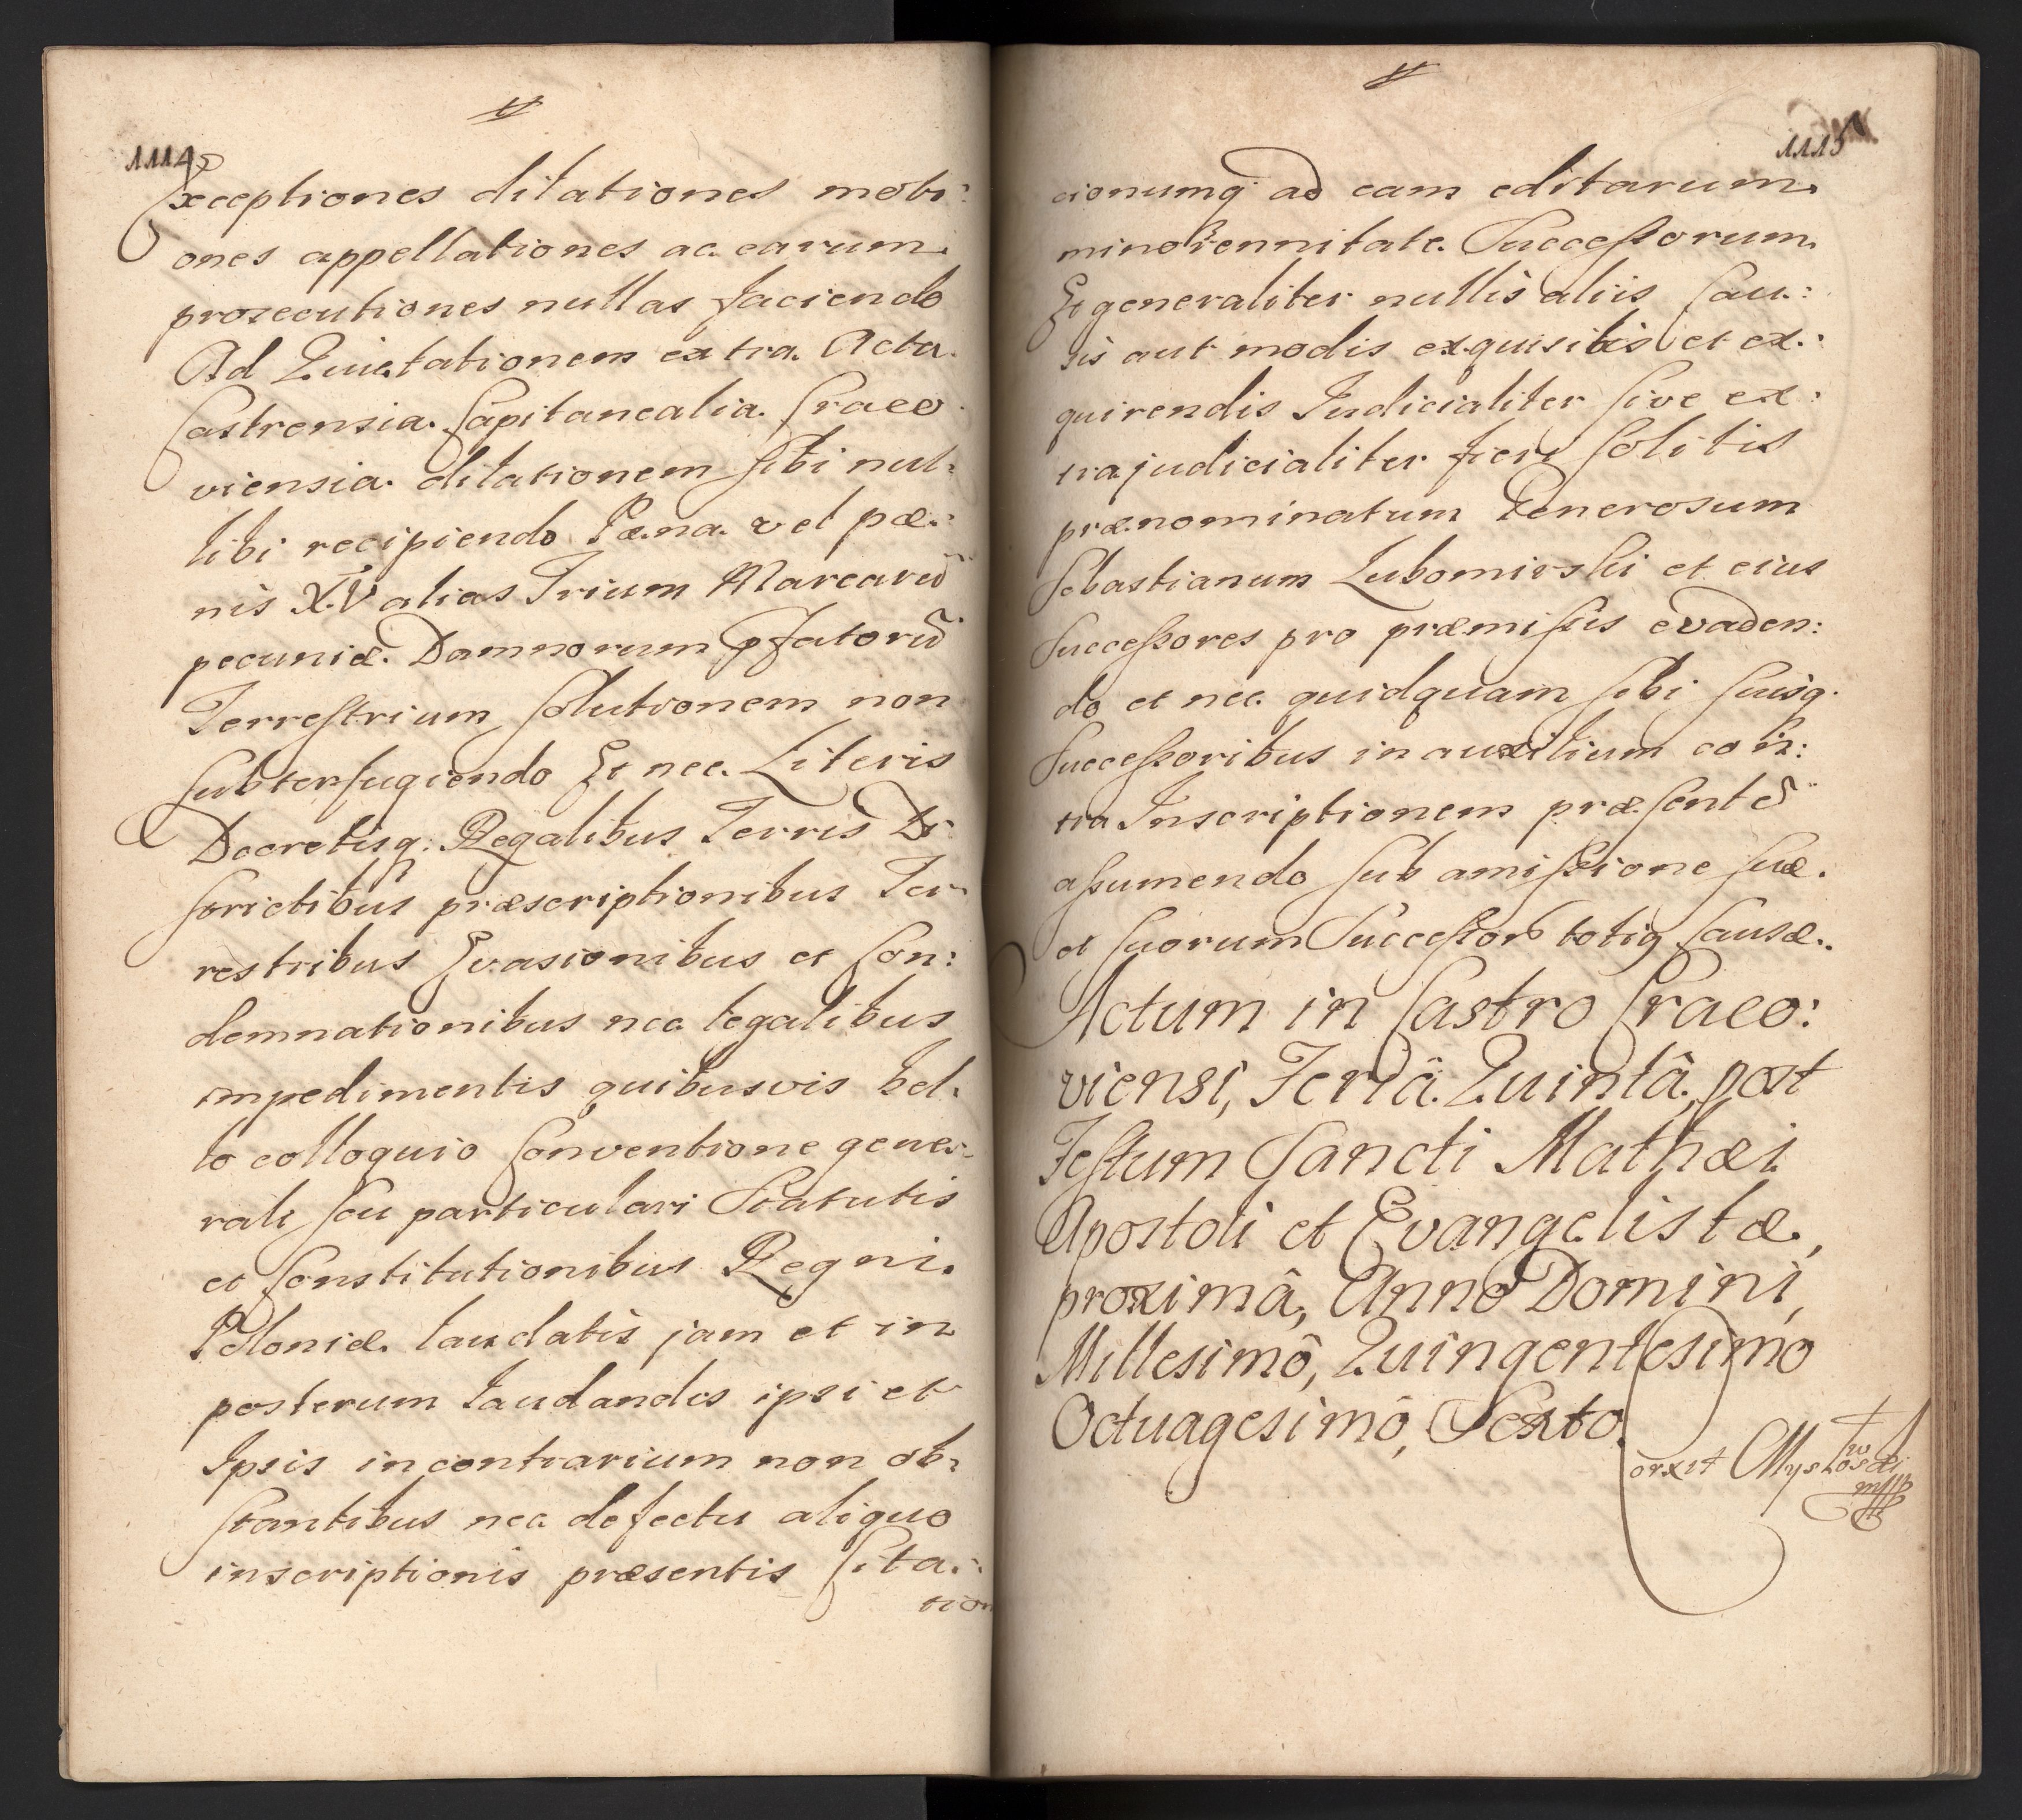 1114
Exceptiones dilationes moti:
ones appellationes ac earum
prosecutiones nullas faciendo
Ad Quietationem extra Acta
Castrensia Capitanealia Craco
viensia dilationem sibi nul:
libi recipiendo Pæna vel pæ:
nis XV alias Trium Marcarū
pecuniæ Damnorum pfatorū
Terrestrium solutionem non
subterfugiendo Et nec Literis
Decretisq: Regalibus Terris
strictibus præscriptionibus Ter
restribus Evasionibus et Con:
demnationibus nec legalibus
impedimentis quibusvis bel:
lo colloquio Conventione gene:
rali seu particulari Statutis
et Constitutionibus Regni
Poloniæ laudatis jam et in
posterum laudandis ipsi et
Ipsis in contrarium non ob:
stantibus nec defectu aliquo
inscriptionis præsentis Cita:
tion
1115
cionumq ad eam editarum
minorennitate Successorum
Et generaliter nullis aliis Cau:
sis aut modis exquisitis et ex:
quirendis Judicialiter sive ex:
trajudicialiter fieri solitis
prænominatum Generosum
Sebastianum Lubomirski et eius
Successores pro præmissis evaden:
do et nec quidquam sibi suisq.
Successoribus in auxilium con:
tra Inscriptionem præsentē
assumendo sub amissione suæ
et suorum Successorū totiq Causæ.
Actum in Castro Craco:
viensi, Feriâ Quintâ, post
Festum Sancti Mathæi
Apostoli et Evangelistæ,
proximâ, Anno Domini,
Millesimô, Quingentesimo
Octuagesimô, Sexto.